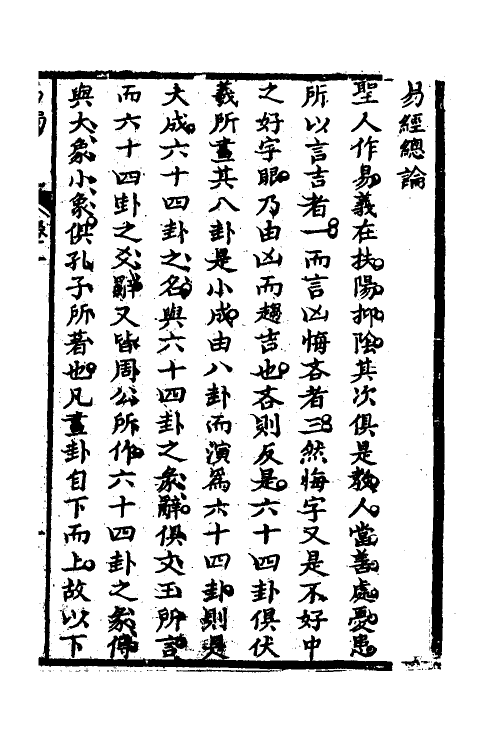 易經總論
聖人作易義在扶陽抑陰其次俱是教人當善處憂患
所以言吉者一而言凶悔吝者三然悔字又是不好中
之好字眼乃由凶而趨吉也吝則反是六十四卦俱伏
羲所畫其八卦是小成由八卦而演爲六十四卦則是
大成六十四卦之名與六十四卦之彖辭俱文王所言
而六十四卦之爻辭又皆周公所作六十四卦之彖傳
與大象小象俱孔子所著也凡畫卦自下而上故以下